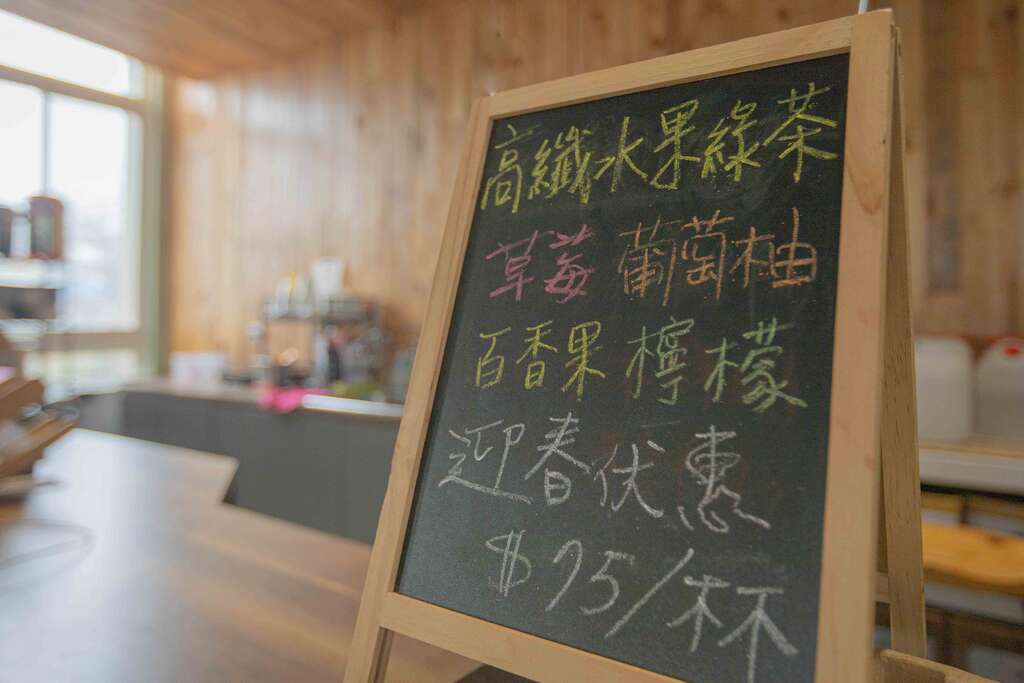 高纖水果綠茶
草莓 葡萄柚
百香果 檸檬
迎春伏惠
$75/杯